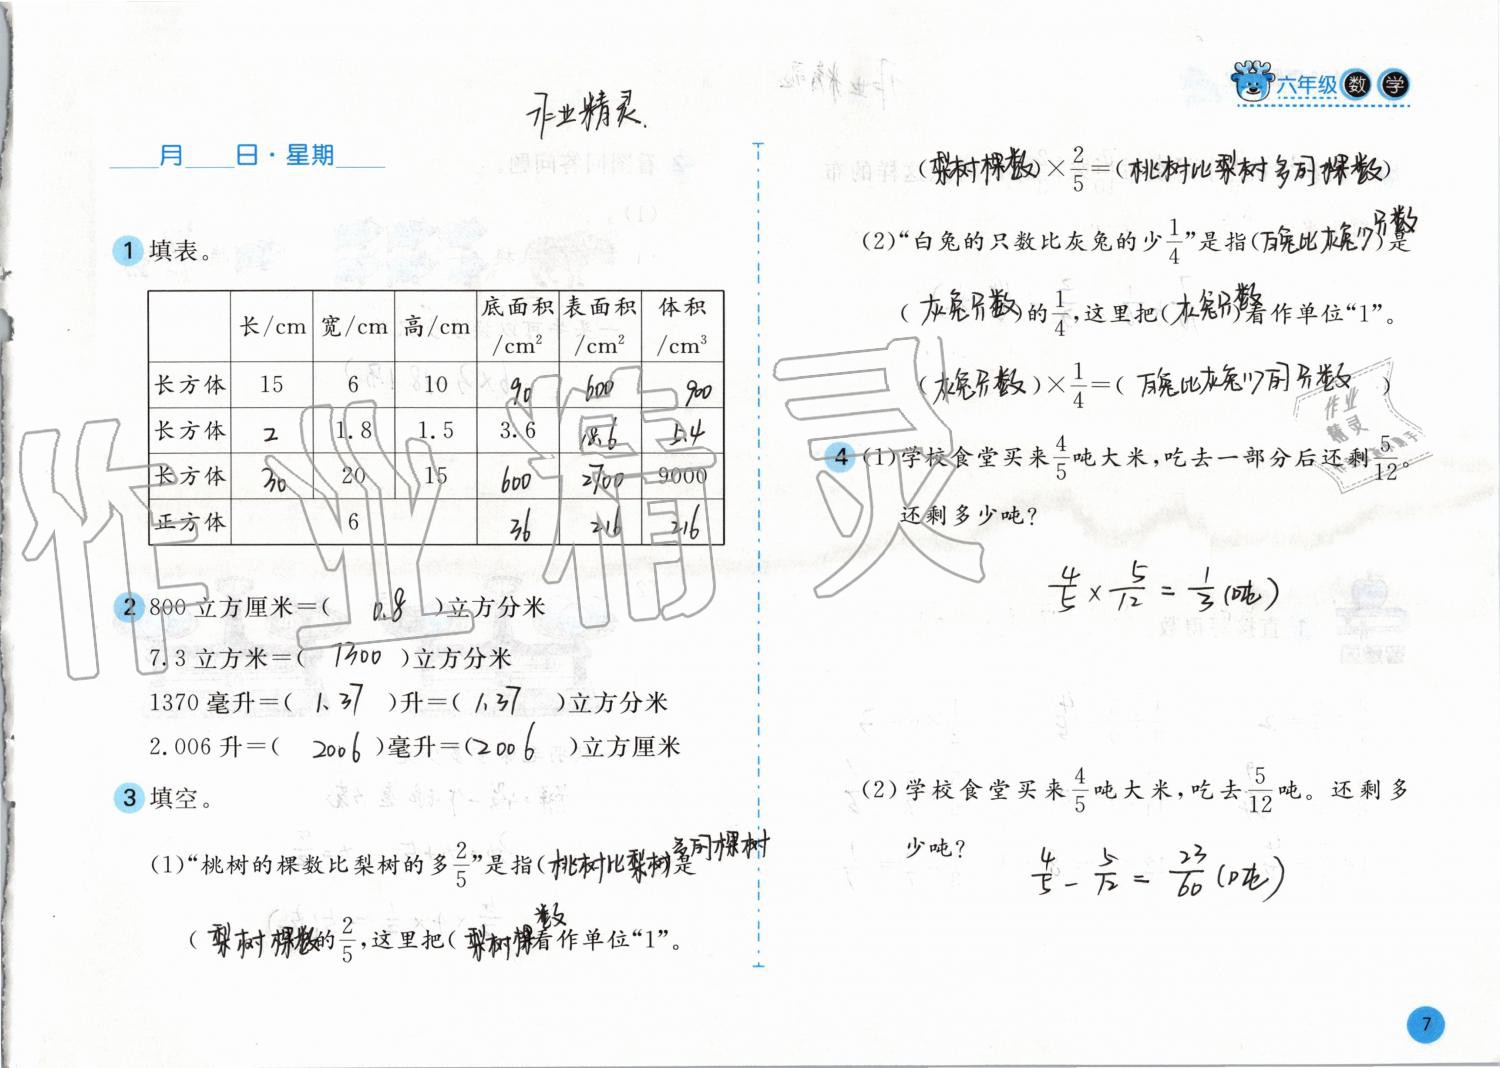 六年级 数学
作业精灵
作业精灵.
____月____日·星期____
1 填表。
长/cm 宽/cm 高/cm 底面积/cm² 表面积/cm² 体积/cm³
长方体 15 6 10 90 600 900
长方体 2 1.8 1.5 3.6 18.6 5.4
长方体 30 20 15 600 2700 9000
正方体 6 36 216 216
2 800立方厘米=( 0.8 )立方分米
7.3立方米=( 7300 )立方分米
1370毫升=( 1.37 )升=( 1.37 )立方分米
2.006升=( 2006 )毫升=(2006 )立方厘米
3 填空。
(1)“桃树的棵数比梨树的多2/5”是指(桃树比梨树多的棵树是
(梨树棵数的2/5,这里把(梨树棵数看作单位“1”。
(梨树棵数)×2/5=(桃树比梨树多的棵数)
(2)“白兔的只数比灰兔的少1/4”是指(白兔比灰兔少 分数)是
(灰兔分数)的1/4,这里把(灰兔分数)看作单位“1”。
(灰兔分数)×1/4=(白兔比灰兔少的分数 )
4 (1)学校食堂买来4/5吨大米,吃去一部分后还剩5/12。
还剩多少吨?
4/5×5/12=1/3(吨)
(2)学校食堂买来4/5吨大米,吃去5/12吨。还剩多
少吨?
4/5-5/12=23/60(吨)
作业精灵
作业
精灵
7